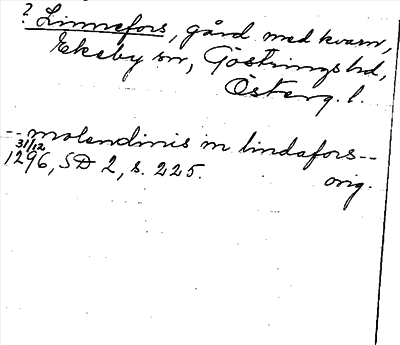 ? Linnefors, gård med kvarn,
Ekeby sn, Göstrings hd,
Österg. l.
-- molendinis in lindafors --
31/12
1296, SD 2, s. 225. orig.